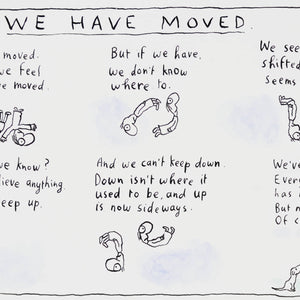 WE HAVE MOVED.
moved.
we feel
ve moved.
But if we have,
we don't know
where to.
We see
shifted
seems
we know?
lieve anything.
eep up.
And we can't keep down.
Down isn't where it
used to be, and up
is now sideways.
We've
Every
has i
But n
Of c